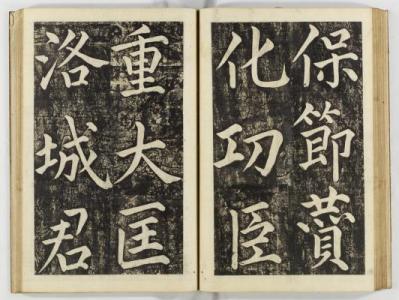 保節賛
化功臣
重大匡
洛城君